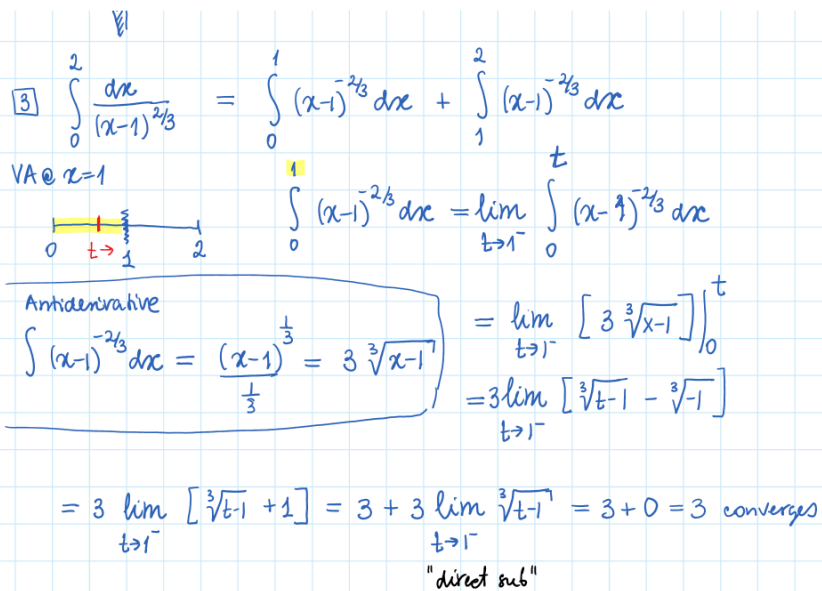 3 ∫₀² dx/(x-1)^(2/3) = ∫₀¹ (x-1)^(-2/3) dx + ∫₁² (x-1)^(-2/3) dx
VA @ x=1
∫₀¹ (x-1)^(-2/3) dx = lim t→1⁻ ∫₀ᵗ (x-1)^(-2/3) dx
0 t→ 1 2
Antiderivative
∫ (x-1)^(-2/3) dx = (x-1)^(1/3)/(1/3) = 3 ∛(x-1)
= lim t→1⁻ [3 ∛(x-1)]|₀ᵗ
= 3 lim t→1⁻ [∛(t-1) - ∛(-1)]
= 3 lim t→1⁻ [∛(t-1) + 1] = 3 + 3 lim t→1⁻ ∛(t-1) = 3 + 0 = 3 converges
"direct sub"